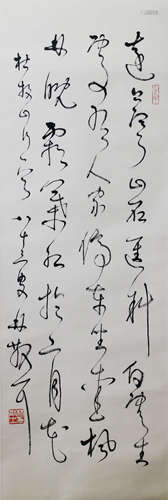 遠上寒山石徑斜白雲生
處有人家停車坐愛楓
林晚霜葉紅於二月花
杜牧山行 八十三叟林散耳